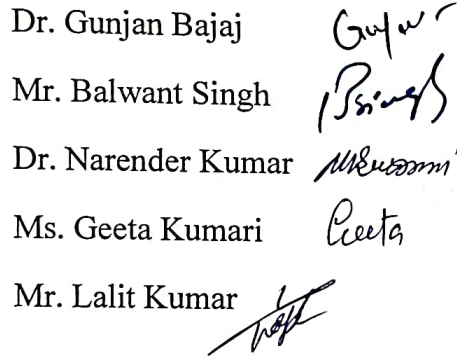 Dr. Gunjan Bajaj Gunjan
Mr. Balwant Singh BSingh
Dr. Narender Kumar
Ms. Geeta Kumari Geeta
Mr. Lalit Kumar